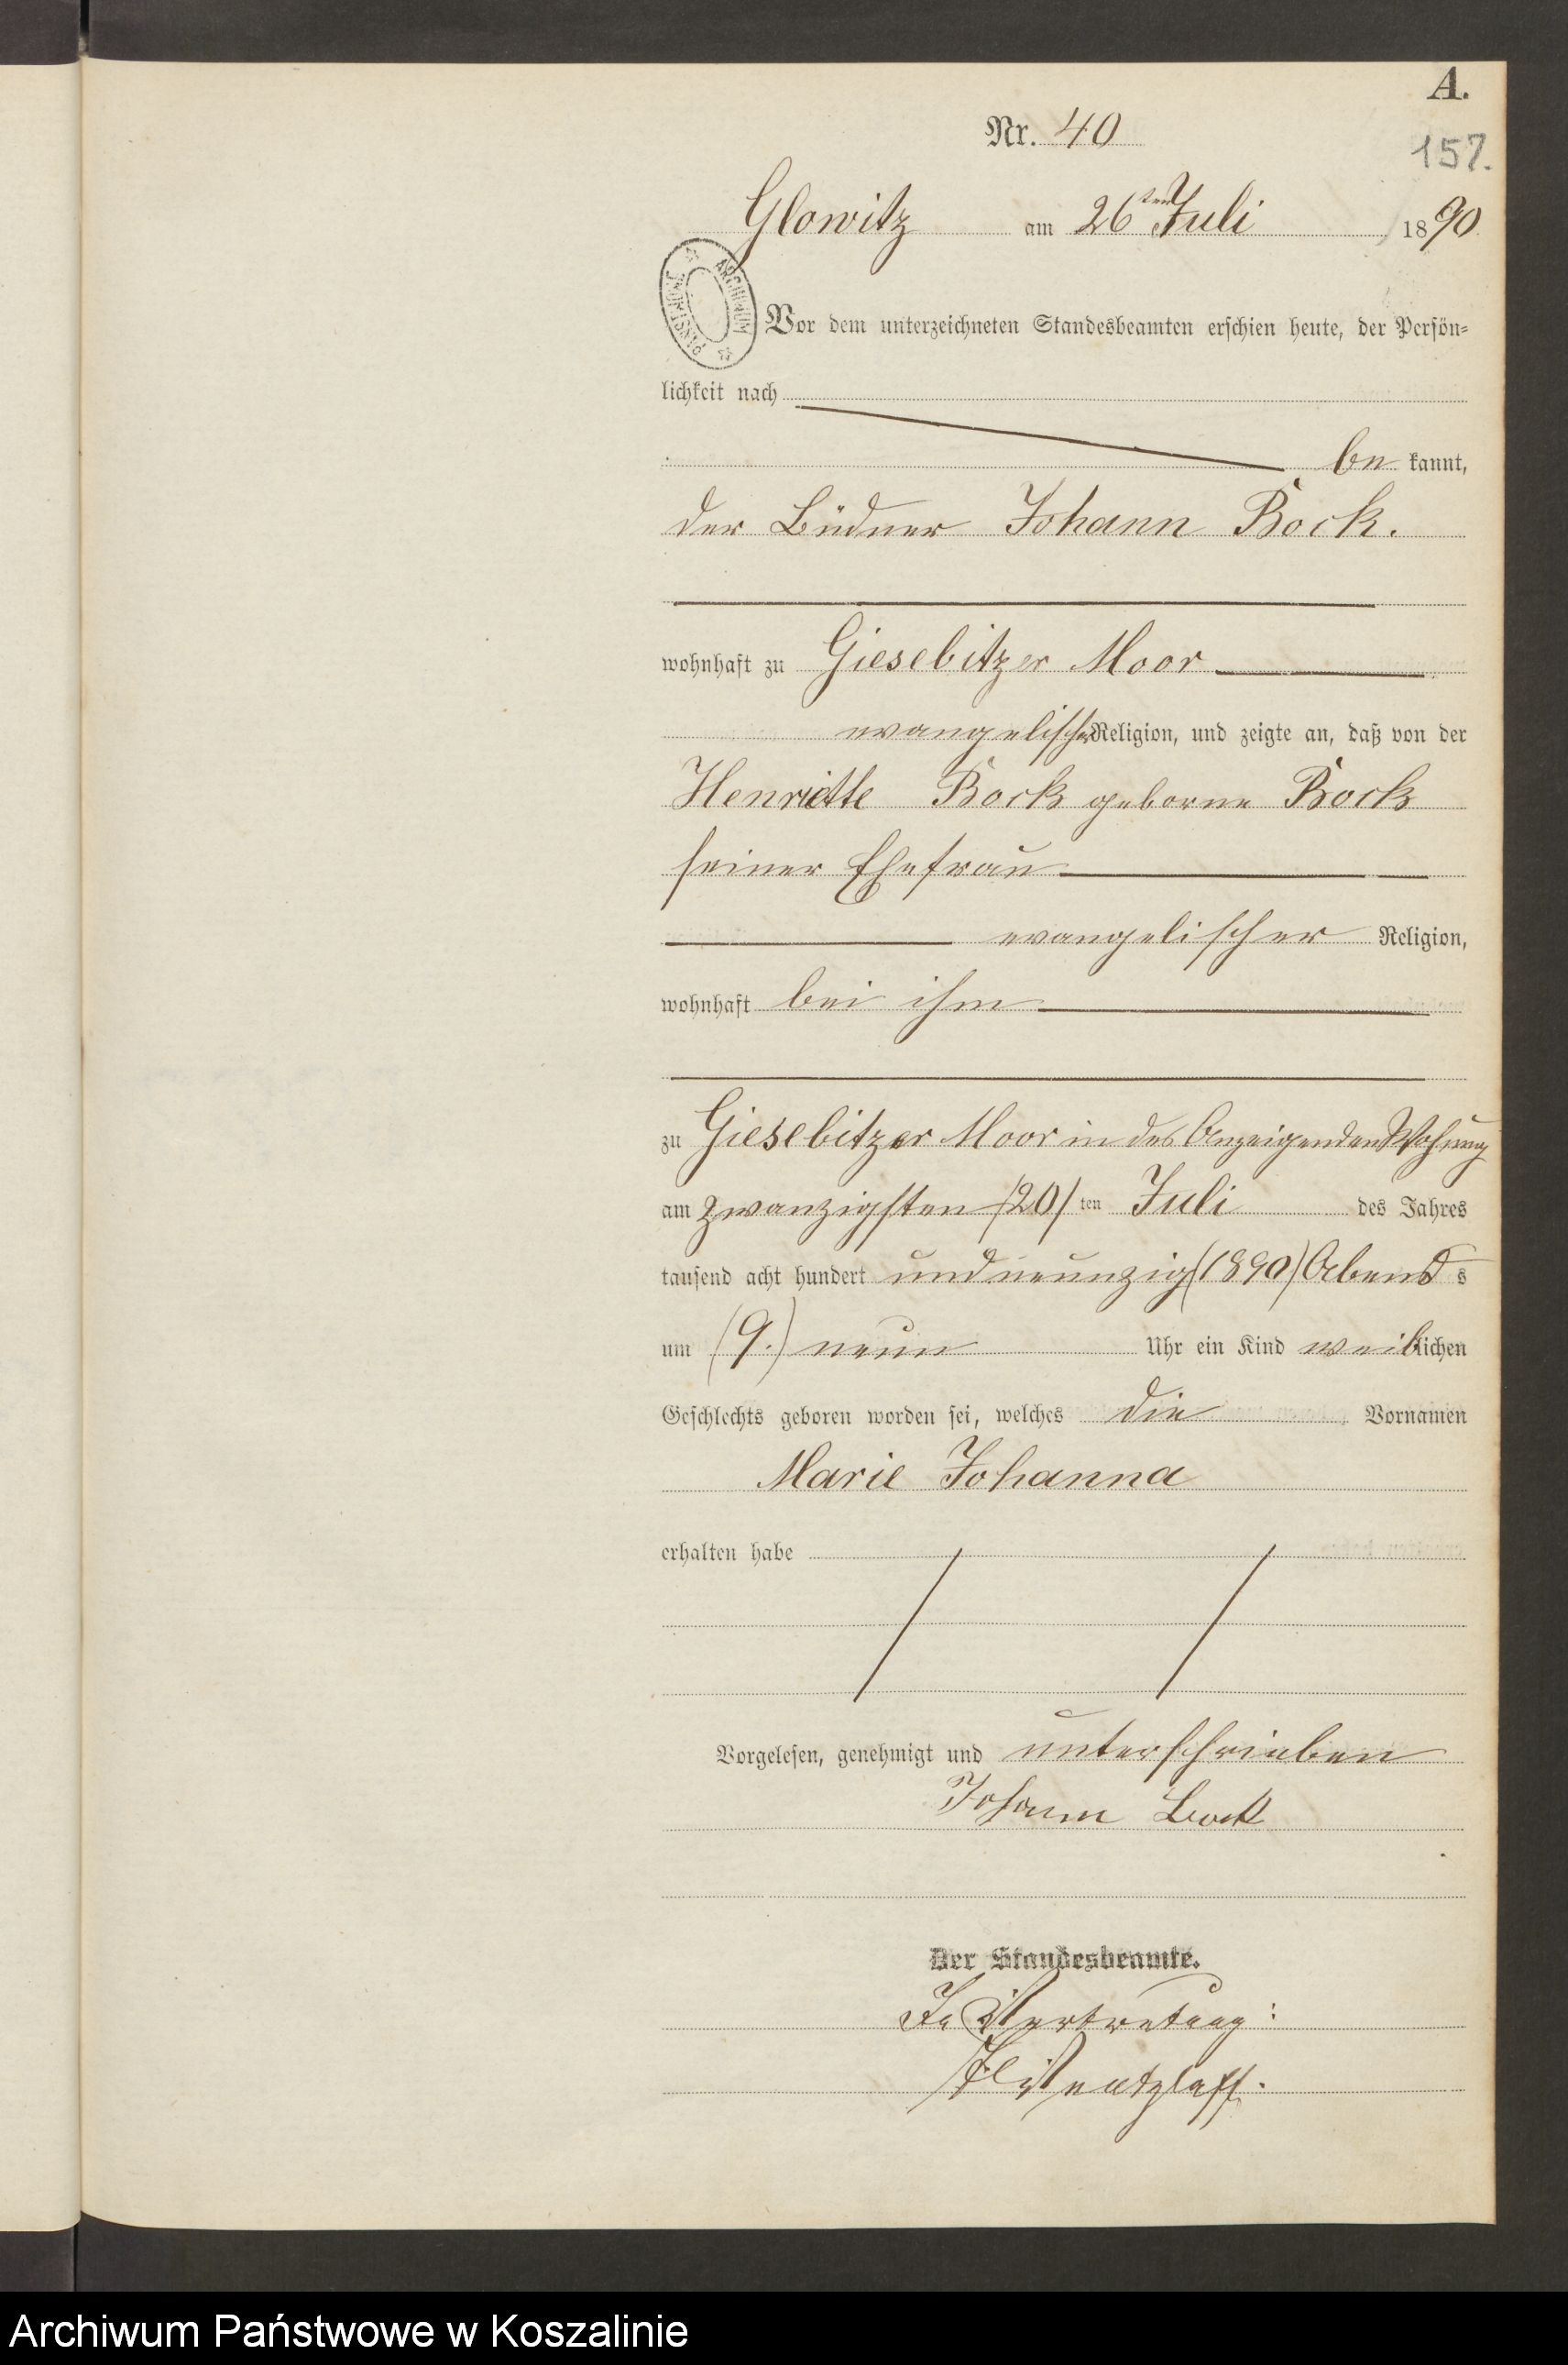 A.
Nr. 40
157.
Glowitz am 26ten Juli 1890
ARCHIWUM PAŃSTWOWE
Vor dem unterzeichneten Standesbeamten erschien heute, der Persön-
lichkeit nach
be kannt,
der Büdner Johann Bock.
wohnhaft zu Giesebitzer Moor
evangelischer Religion, und zeigte an, daß von der
Henriette Bock geborne Bock
seiner Ehefrau
evangelischer Religion,
wohnhaft bei ihm
zu Giesebitzer Moor in des Anzeigenden Wohnung
am zwanzigsten /20/ ten Juli des Jahres
tausend acht hundert und neunzig (1890) Abends
um (9.) neun Uhr ein Kind weiblichen
Geschlechts geboren worden sei, welches die Vornamen
Marie Johanna
erhalten habe
Vorgelesen, genehmigt und unterschrieben
Johann Bock
Der Standesbeamte.
In Vertretung:
Archiwum Państwowe w Koszalinie